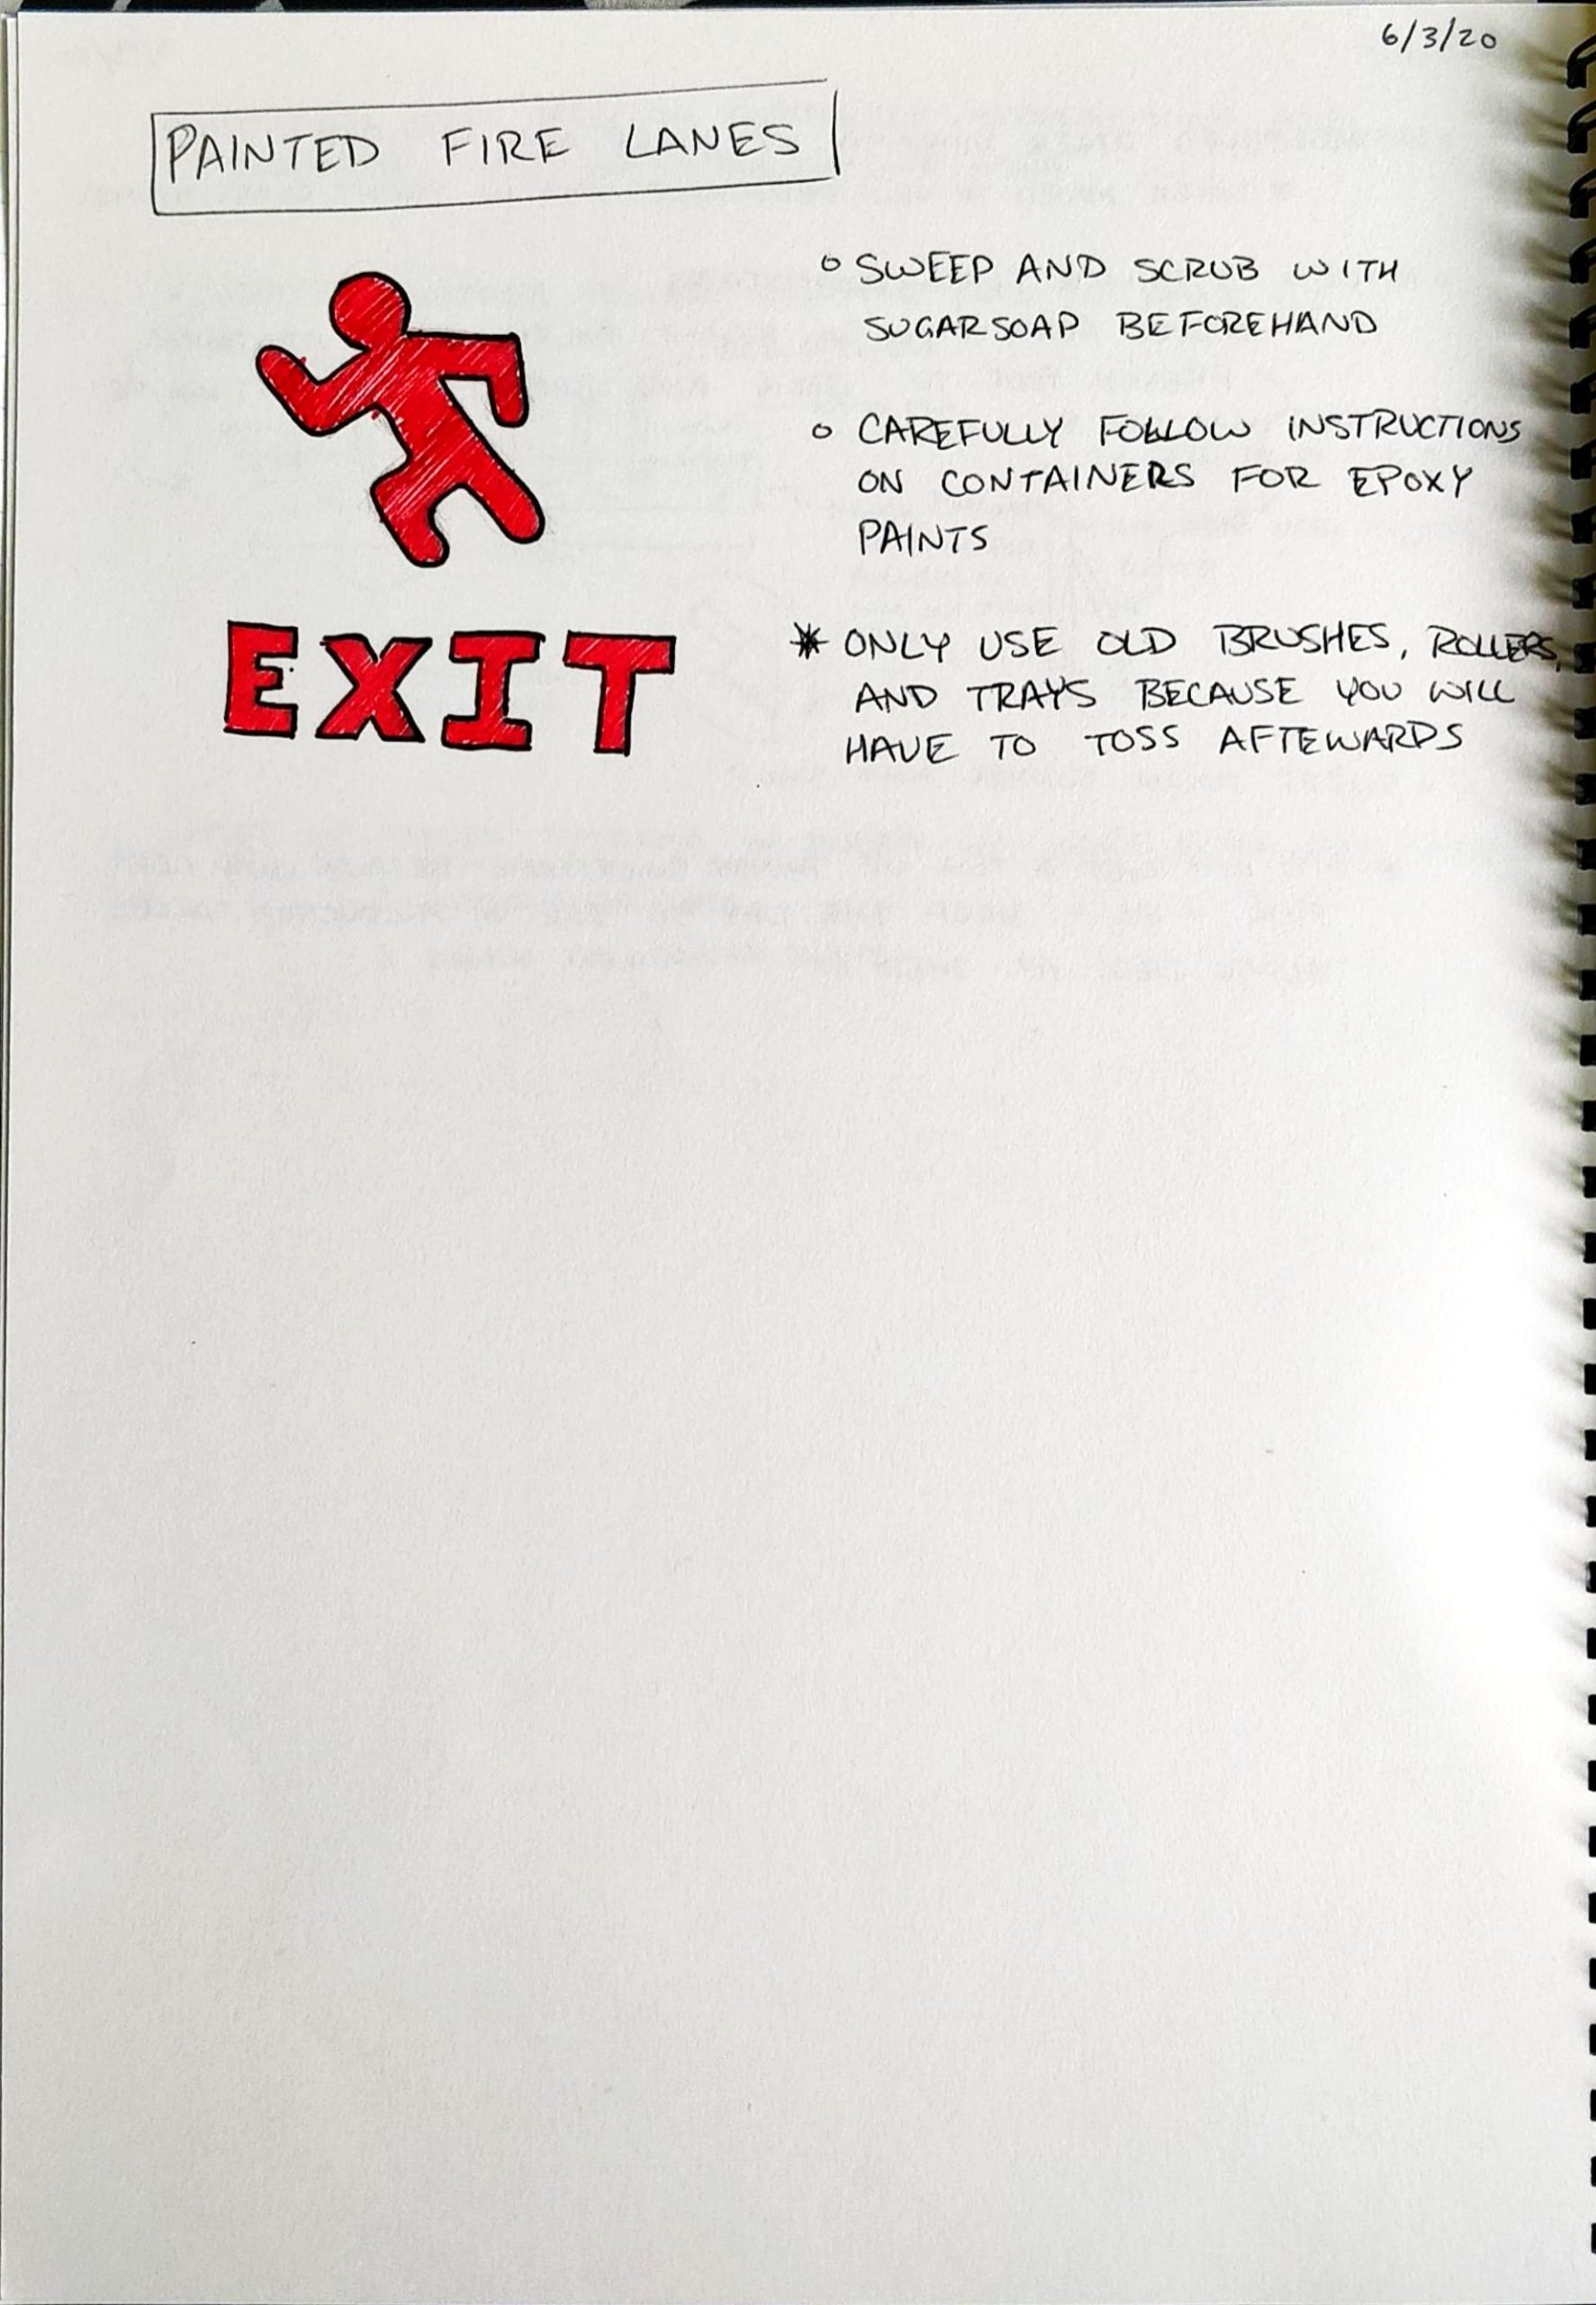 6/3/20
PAINTED FIRE LANES
○ SWEEP AND SCRUB WITH
SUGARSOAP BEFOREHAND
○ CAREFULLY FOLLOW INSTRUCTIONS
ON CONTAINERS FOR EPOXY
PAINTS
EXIT
* ONLY USE OLD BRUSHES, ROLLERS,
AND TRAYS BECAUSE YOU WILL
HAVE TO TOSS AFTEWARDS